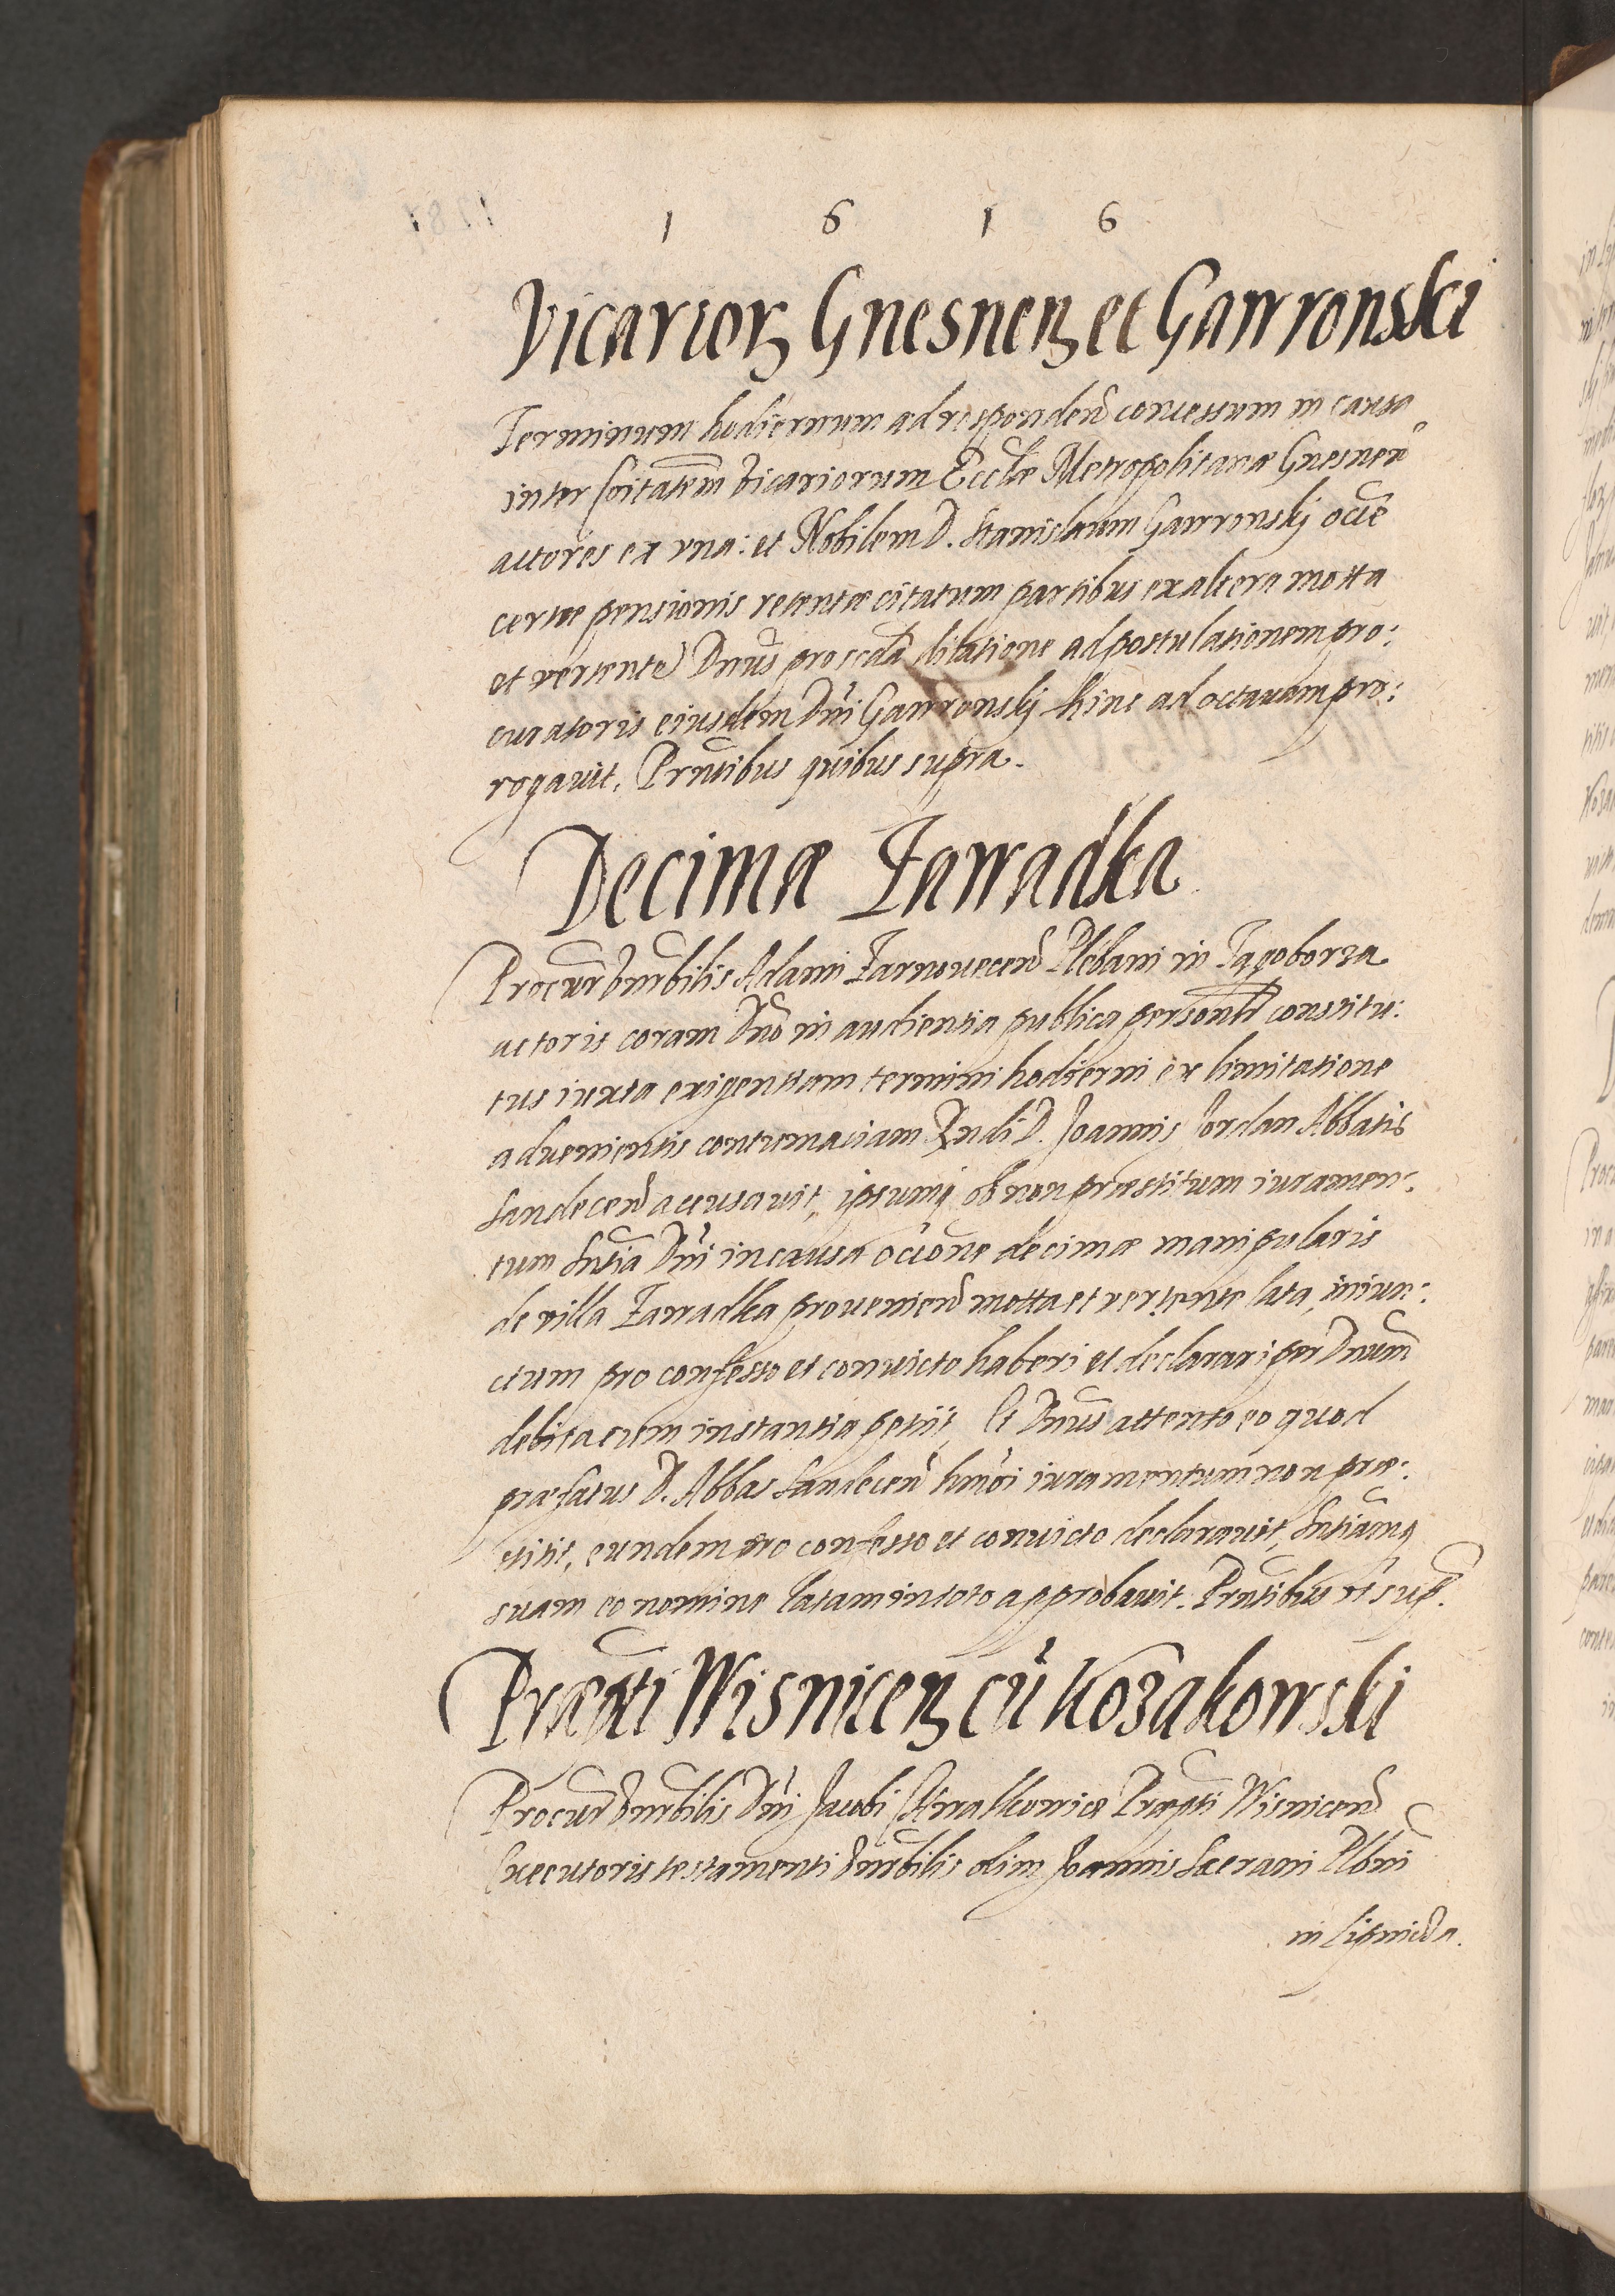 1 6 1 6
Vicarioꝝ Gnesneꝫ et Gawronski
Terminum hodiernum ad respondend concessum in causa
inter Coitatem vicariorum Eccłæ Metropolitanæ Gnesnen
actores ex vna: et Nobilem D. Stanislaum Gawronskj occe
certæ pensionis retentæ citatum partibus ex altera motta
et vertente) Dnus pro scda dilatione ad postulationem pro:
curatoris eiusdem Dni Gawronskj hinc ad octauam pro:
rogauit. Prntibus quibus supra.
Decimæ Zawadka
Procur Vnrbilis Adami Zarnouecen Plebani in Tęgoborza
actoris coram Dno in audientia publica personlr constitu:
tus iuxta exigentiam termini hodierni ex limitatione
aduenientis contumaciam Rndi D. Joannis Jordan Abbatis
Sandecen accusauit, ipsumq ob non præstitum iuramen:
tum Sntia Dni in causa occone decimæ manipularis
de villa Zawadka prouenien motta et vertente lata, iniun:
ctum pro confesso et conuicto haberi et declarari per Dnum
debita cum instantia petiit. Et Dnus attento eo quod
præfatus D. Abbas Sandecen hmoi iuramentum non præ:
stitit, eundem pro confesso et conuicto declarauit, Sntiamq
suam eo nomine latam in toto approbauit. Prntibus vt sup.
Præpti Wisniceꝫ cu Kozakowski
Procur Vnrbilis Dni Jacobi Præpti Wisnicen
Executoris testamenti Vnrbilis olim Joannis Sacrani Plbni
in Lipnicza.